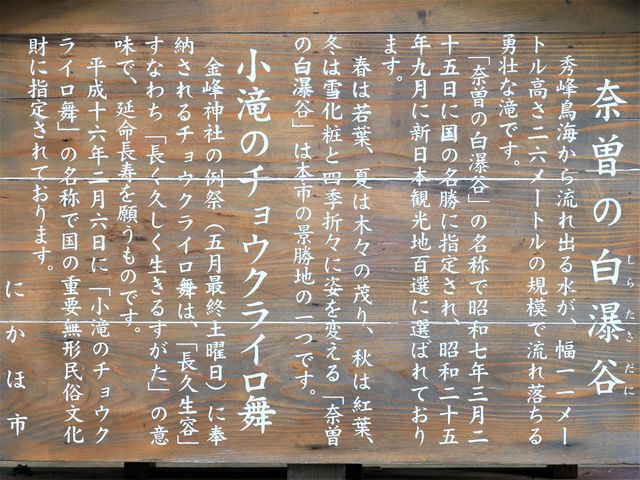 奈曽の白瀑谷
しらたきだに
秀峰鳥海から流れ出る水が、幅一一メー
トル高さ二六メートルの規模で流れ落ちる
勇壮な滝です。
「奈曽の白瀑谷」の名称で昭和七年三月二
十五日に国の名勝に指定され、昭和二十五
年九月に新日本観光地百選に選ばれており
ます。
春は若葉、夏は木々の茂り、秋は紅葉、
冬は雪化粧と四季折々に姿を変える「奈曽
の白瀑谷」は本市の景勝地の一つです。
小滝のチョウクライロ舞
金峰神社の例祭（五月最終土曜日）に奉
納されるチョウクライロ舞は、「長久生容」
すなわち「長く久しく生きるすがた」の意
味で、延命長寿を願うものです。
平成十六年二月六日に「小滝のチョウク
ライロ舞」の名称で国の重要無形民俗文化
財に指定されております。
にかほ市